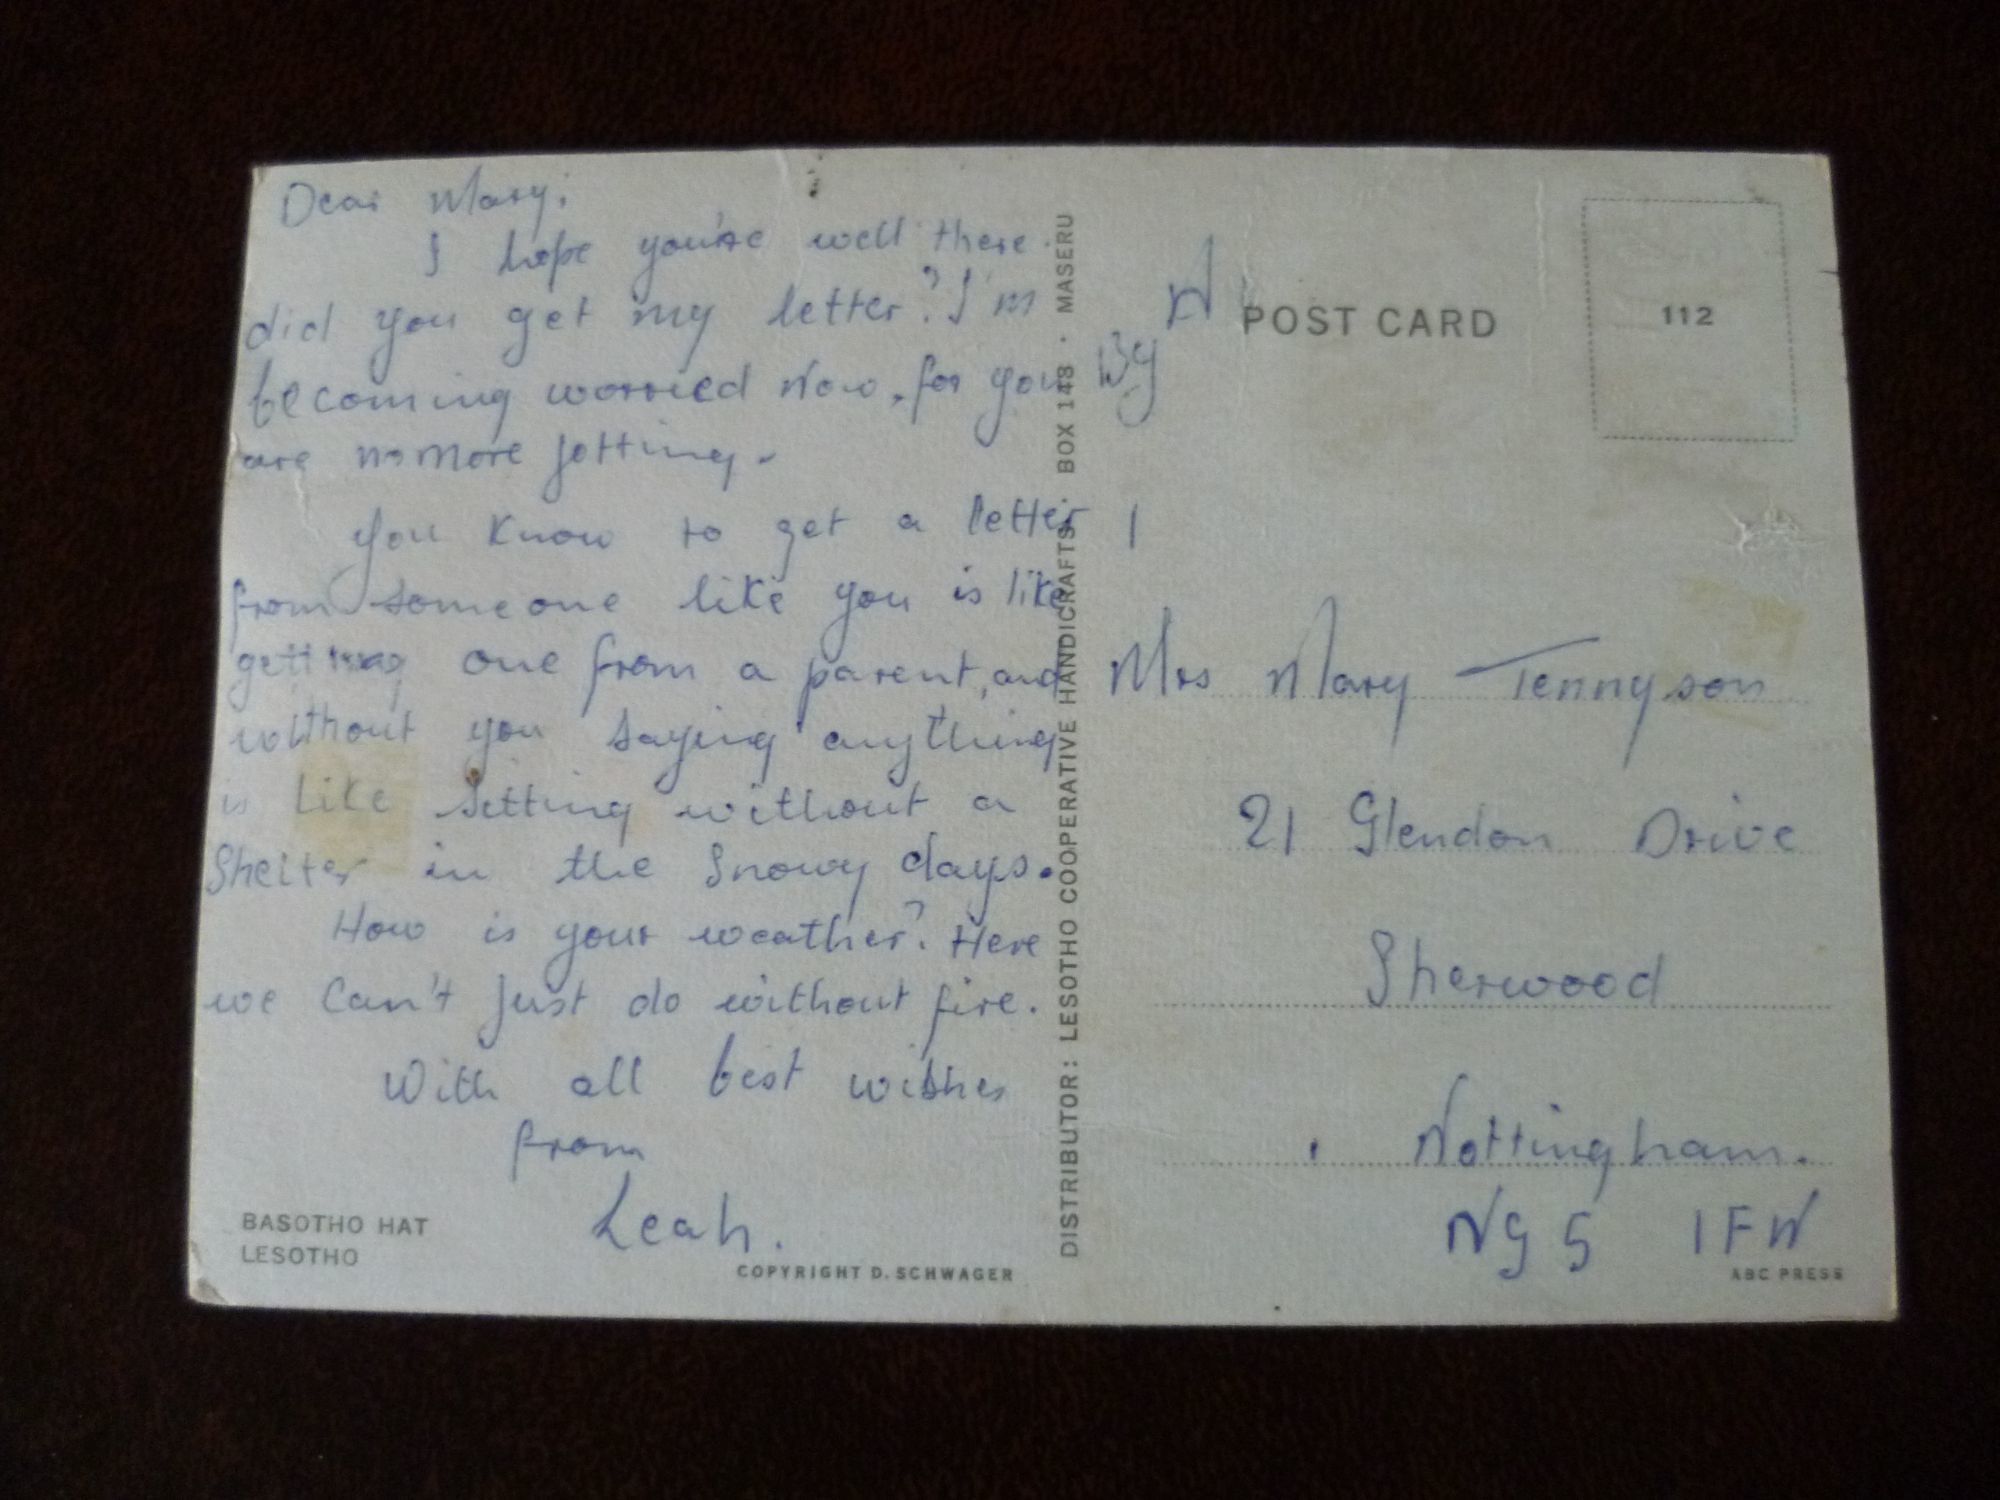 Dear Mary;
I hope you're well there.
did you get my letter? I'm
becoming worried now, for you
are nomore jotting.
You know to get a letter
from someone like you is like
getting one from a parent, and
without you saying anything
is like sitting without a
Shelter in the Snowy days.
How is your weather? Here
we can't just do without fire.
With all best wishes
from
Leah.
BASOTHO HAT
LESOTHO
COPYRIGHT D. SCHWAGER
DISTRIBUTOR: LESOTHO COOPERATIVE HANDICRAFTS · BOX 148 · MASERU
POST CARD
112
Mrs Mary Tennyson
21 Glendon Drive
Sherwood
Nottingham.
NG5 1FN
ABC PRESS